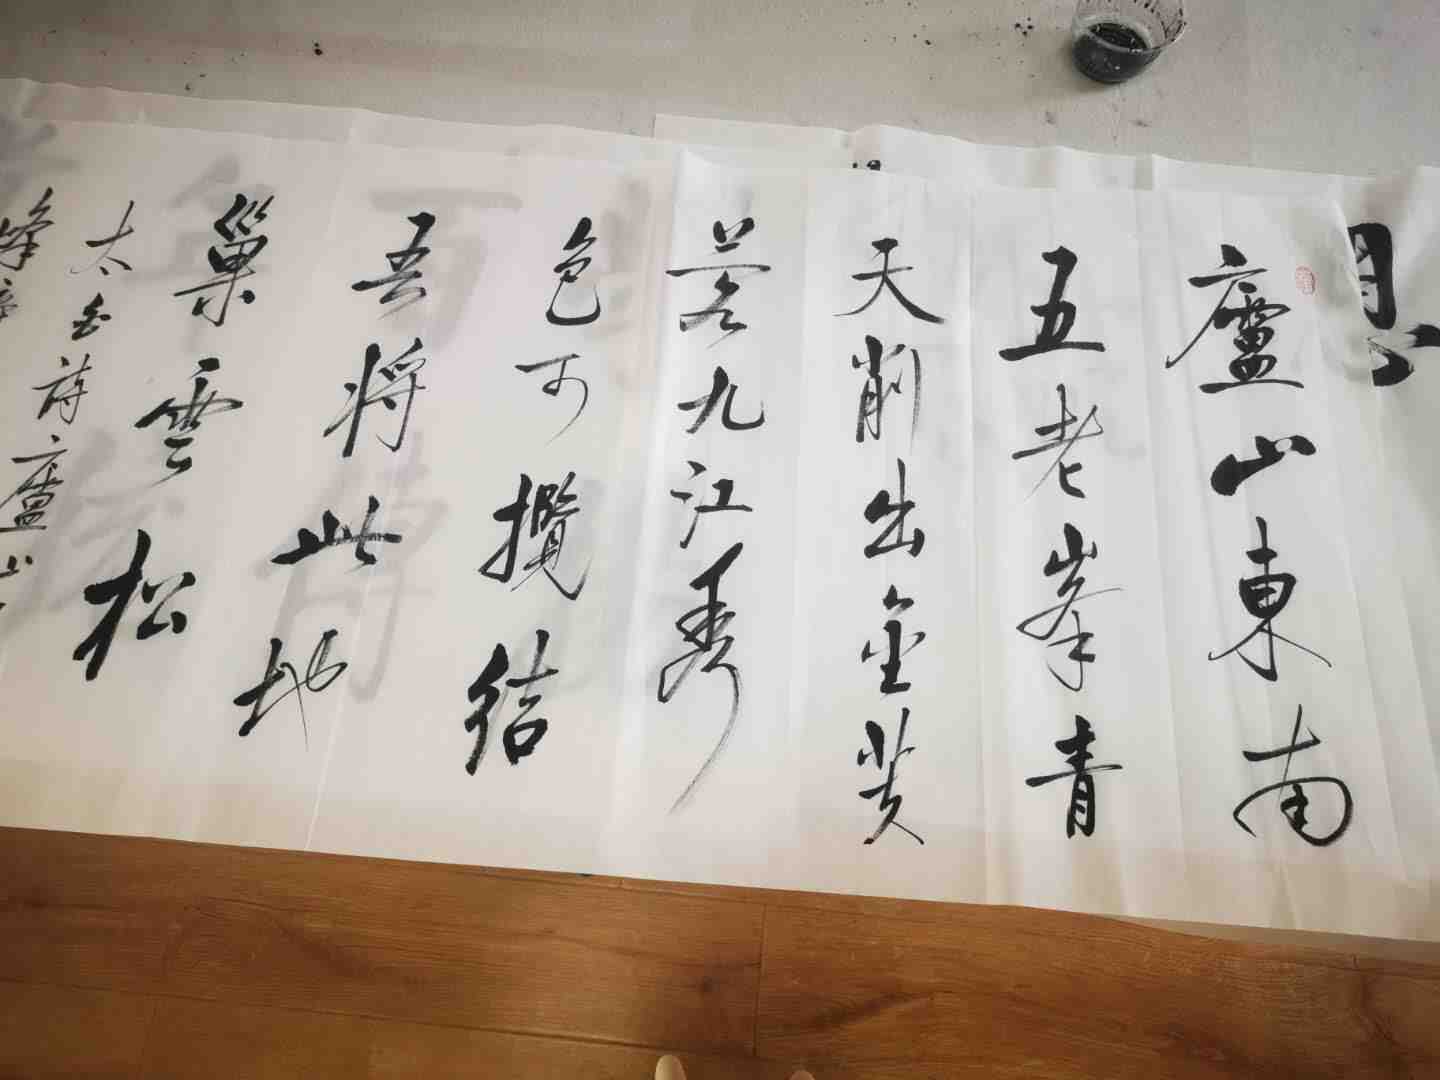 廬山東南
五老峯青
天削出金芙
蓉九江秀
色可攬結
吾將此地
巢雲松
太白詩廬山